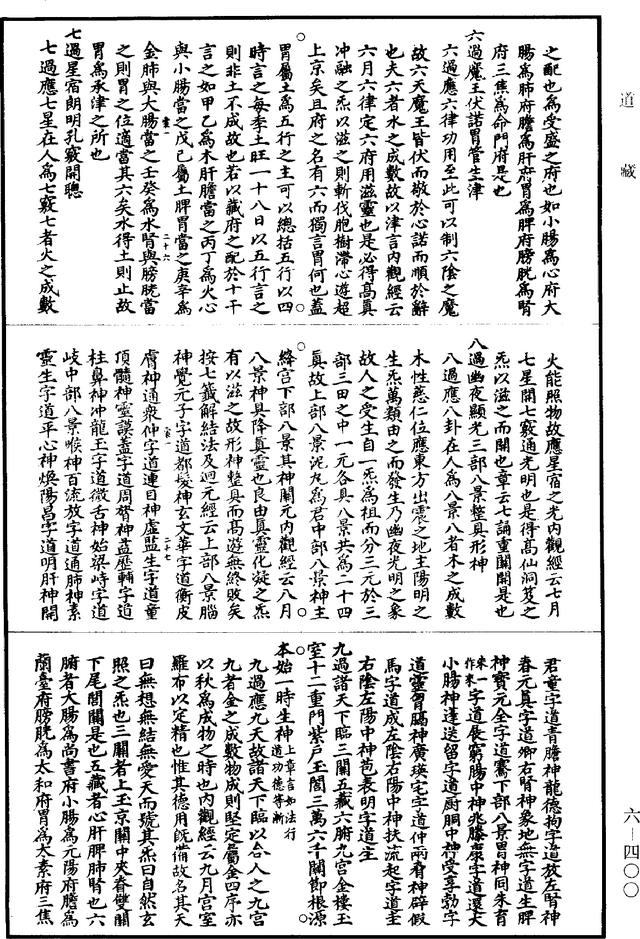 道藏
之配也為受盛之府也如小腸為心府大
腸為肺府膽為肝府胃為脾府膀胱為腎
府三焦為命門府是也
六過魔王伏諾胃管生津
六過應六律功用至此可以制六陰之魔
故六天魔王皆伏而敬於心諾而順於辭
也夫六者水之成數故以津言內觀經云
六月六律定六府用滋靈也是必得高真
冲融之炁以滋之則斬伐胞樹滯心遊超
上京矣且府之名有六而獨言胃何也蓋
胃屬土為五行之主可以總括五行以四
時言之每季土旺一十八日以五行言之
則非土不成故也若以藏府之配於十干
言之如甲乙為木肝膽當之丙丁為火心
與小腸當之戊己屬土脾胃當之庚辛為
金肺與大腸當之壬癸為水腎與膀胱當
之則胃之位適當其六矣水得土則止故
胃為承津之所也
七過星宿朗明孔竅開聰
七過應七星在人為七竅七者火之成數
火能照物故應星宿之光內觀經云七月
七星開七竅通光明也是得高仙洞笈之
炁以滋之而開也章云七誦重關開是也
八過幽夜顯光三部八景整具形神
八過應八卦在人為八景八者木之成數
木性慈仁位應東方出震之地主陽明之
生炁萬類由之而發生乃幽夜光明之象
故人之受生自一炁為祖而分三元於三
部三田之中一元各具八景共為二十四
真故上部八景泥丸為君中部八景神主
絳宮下部八景其神關元內觀經云八月
八景神具降真靈也良由真靈化凝之炁
有以滋之故形神整具而高遊無終敗矣
按七籤解結法及迴元經云上部八景腦
神覺元子字道都髮神玄文華字道衡皮
膚神通衆仲字道連目神虛監生字道童
頂髓神靈謨蓋字道周膂神蓋歷輔字道
柱鼻神冲龍玉字道微舌神始梁峙字道
岐中部八景喉神百流放字道通肺神素
靈生字道平心神煥陽昌字道明肝神開
君童字道青膽神龍德拘字道放左腎神
春元真字道卿右腎神象地無字道生脾
神寶元全字道騫下部八景胃神同朱育
一字道展窮腸中神兆滕康字道還大
小腸神蓬送留字道廚胴中神受尊勃字
道靈胷膈神廣瑛宅字道仲兩脅神辟假
馬字道成左陰右陽中神扶流起字道圭
右陰左陽中神苞表明字道生
九過諸天下臨三關五藏六腑九宮金樓玉
室十二重門紫戶玉閤三萬六千關節根源
本始一時生神上章言如法行道功德等漸
九過應九天故諸天下臨以合人之九宮
九者金之成數物成則堅定屬金四序亦
以秋為成物之時也內觀經云九月宮室
羅布以定精也惟其德用既備故名其天
曰無想無結無愛天而號其炁曰自然玄
照之炁也三關者上玉京關中夾脊雙關
下尾閭關是也五藏者心肝脾肺腎也六
腑者大腸為尚書府小腸為元陽府膽為
蘭臺府膀胱為太和府胃為太素府三焦
六—四〇〇